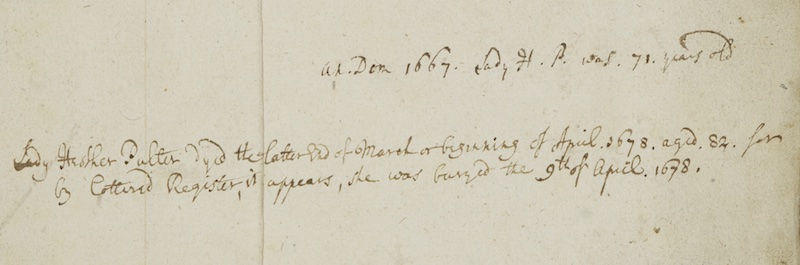 an. Dom 1667. Lady H. P. was. 71. years old
Lady Heșher Pulter dyed the latter End of March or beginning of April. 1678. aged. 82. for
by Cottered Register, it appears, she was buryed the 9th of April. 1678.